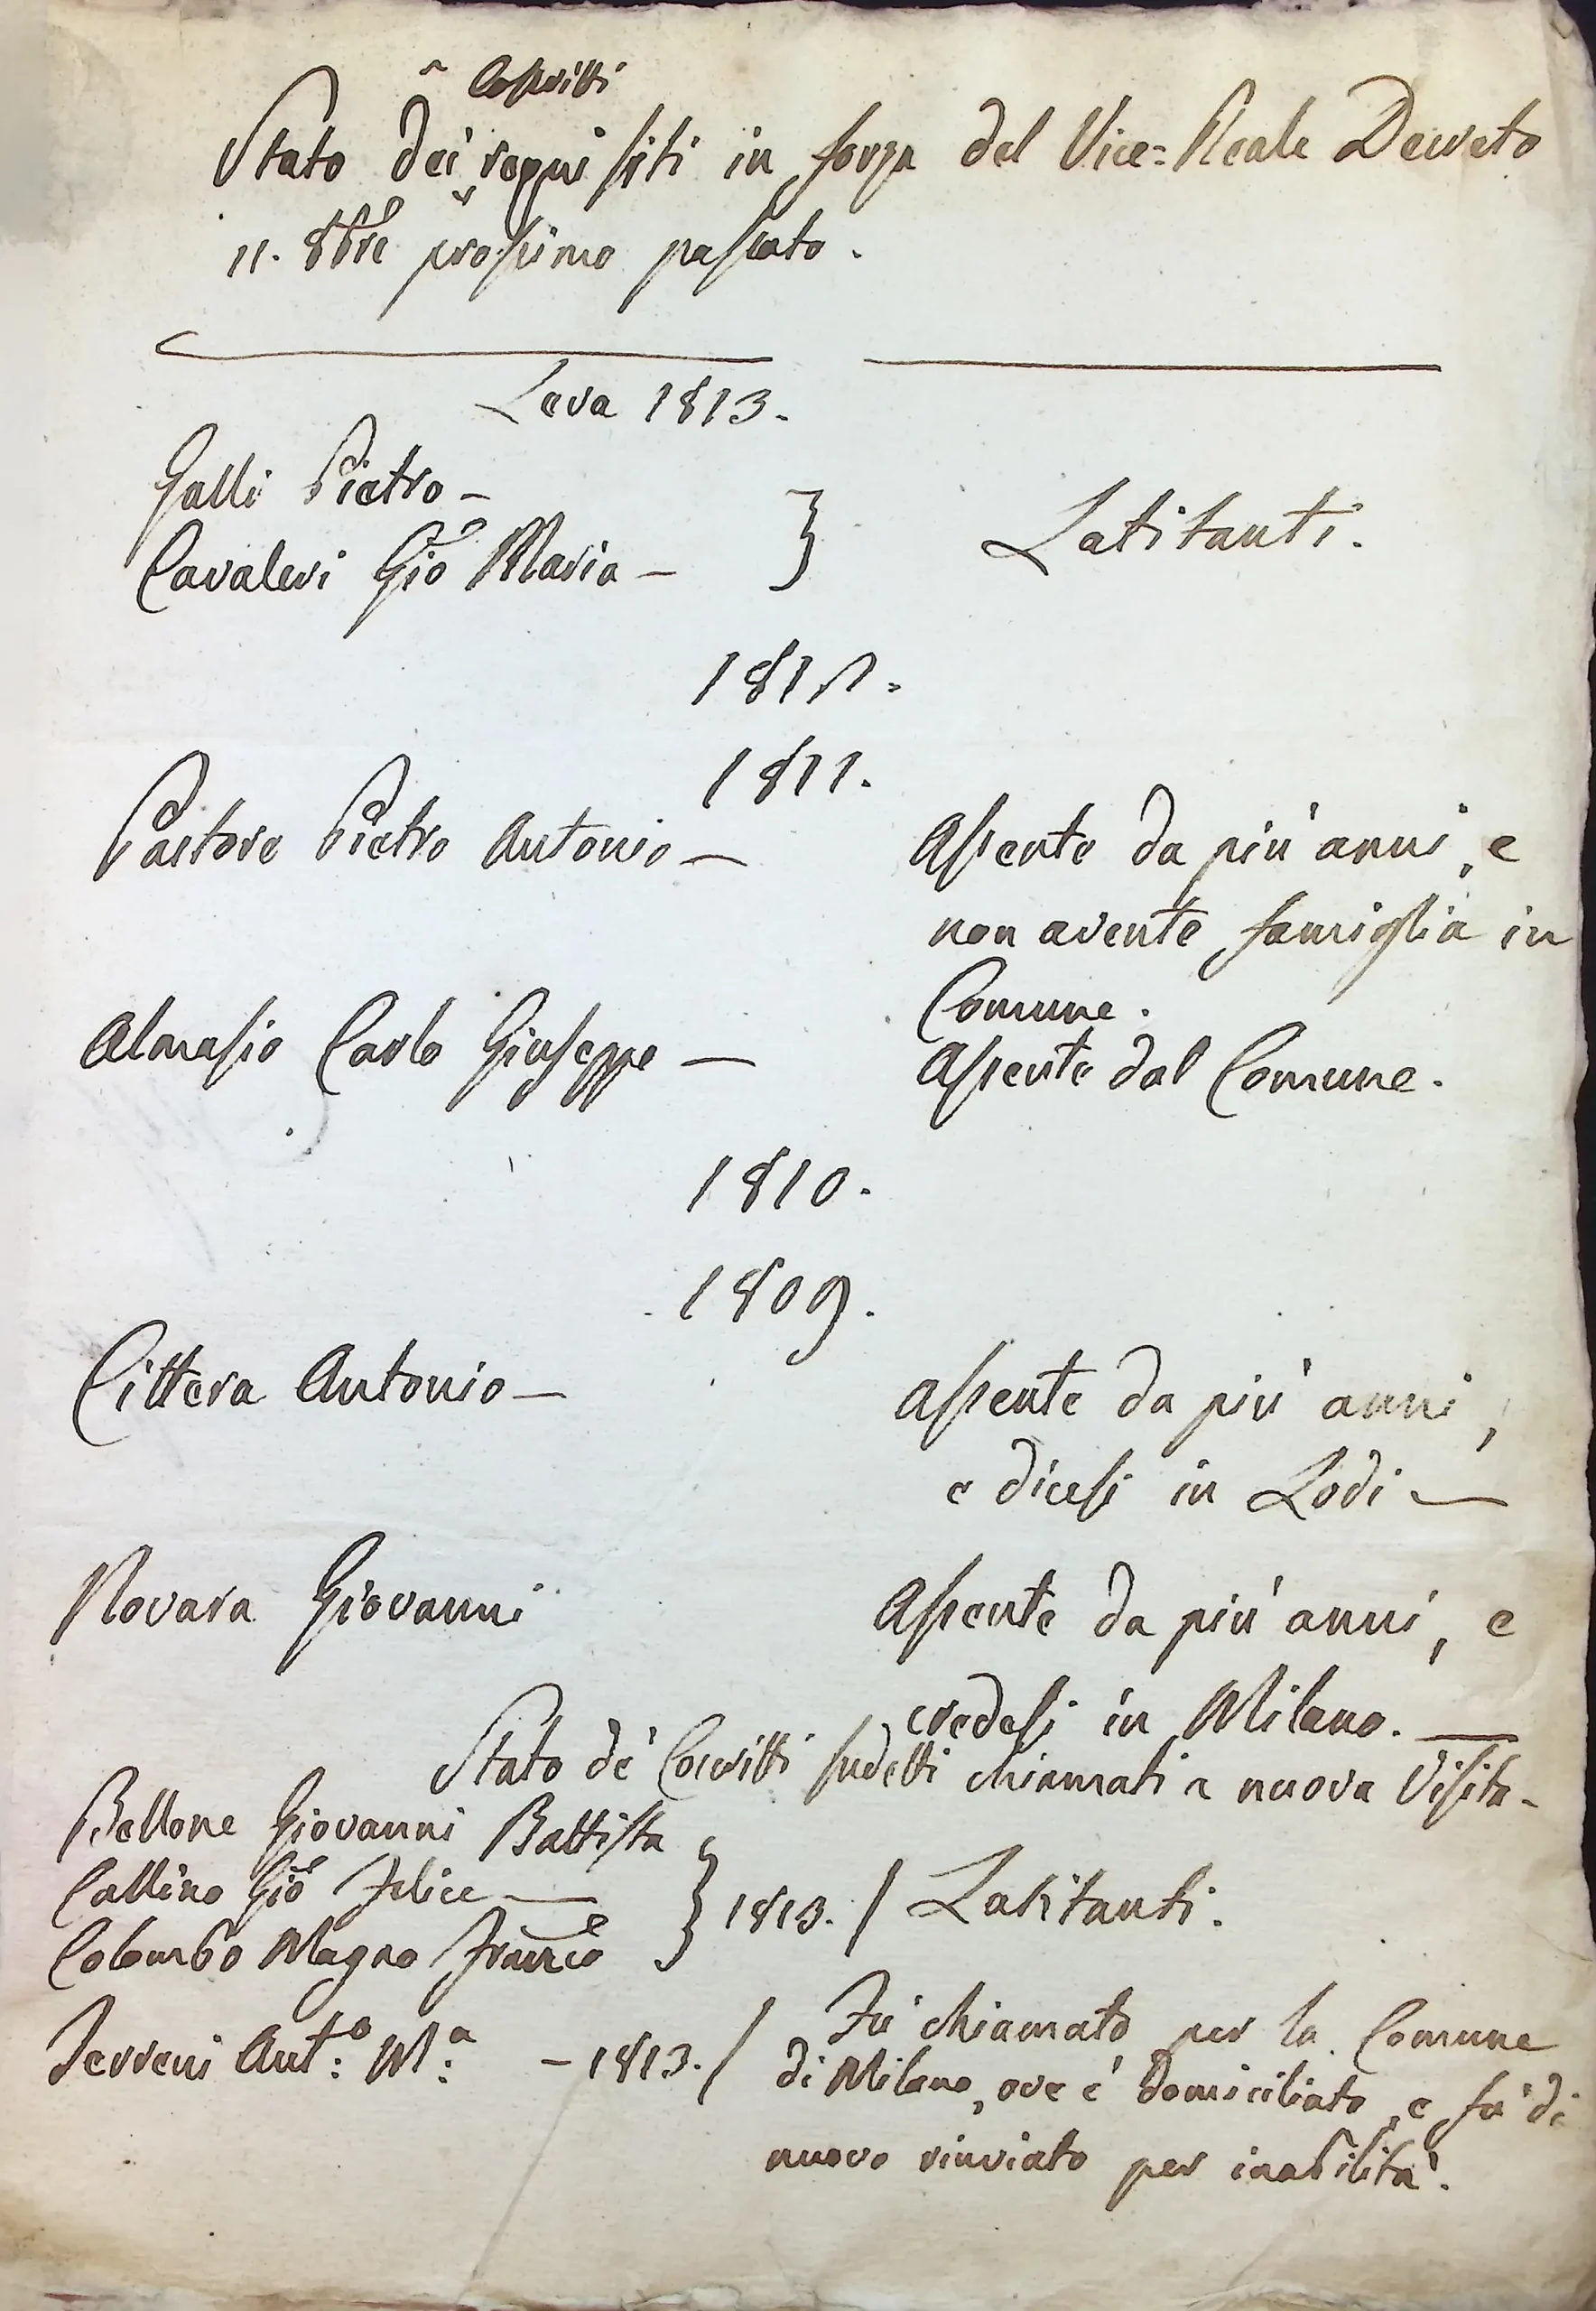 Coscritti
Stato dei requisiti in forza del Vice=Reale Decreto
11. 8bre prossimo passato.
Leva 1813.
Galli Pietro –
Cavaleri Gio Maria – } Latitanti.
1811.
Pastore Pietro Antonio — Assente da più anni, e
non avente famiglia in
Comune.
Almasio Carlo Giuseppe — Assente dal Comune.
1810.
1809.
Cittera Antonio — Assente da più anni,
e dicesi in Lodi —
Novara Giovanni Assente da più anni, e
credesi in Milano. —
Stato de' Coscritti sudetti chiamati a nuova Visita –
Bellone Giovanni Battista
Callino Gio Felice — } 1813. / Latitanti.
Colombo Magno Franco
Ferreri Anto: Ma: – 1813. / Fù chiamato per la Comune
di Milano, ove è domiciliato, e fù di
nuovo rinviato per inabilità.